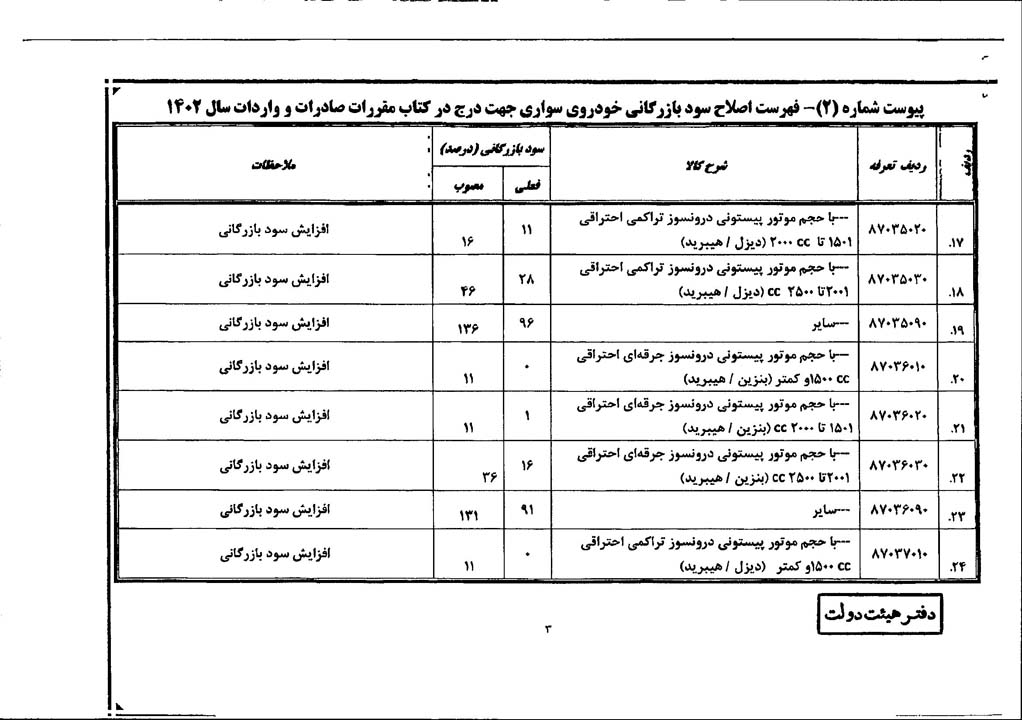 پیوست شماره (۲)- فهرست اصلاح سود بازرگانی خودروی سواری جهت درج در کتاب مقررات صادرات و واردات سال ۱۴۰۲
ردیف ردیف تعرفه شرح کالا سود بازرگانی (درصد) ملاحظات
فعلی مصوب
۱۷. ۸۷۰۳۵۰۲۰ ---با حجم موتور پیستونی درونسوز تراکمی احتراقی ۱۱ ۱۶ افزایش سود بازرگانی
۱۵۰۱ تا ۲۰۰۰ cc (دیزل / هیبرید)
۱۸. ۸۷۰۳۵۰۳۰ ---با حجم موتور پیستونی درونسوز تراکمی احتراقی ۲۸ ۴۶ افزایش سود بازرگانی
۲۰۰۱تا ۲۵۰۰ cc (دیزل / هیبرید)
۱۹. ۸۷۰۳۵۰۹۰ ---سایر ۹۶ ۱۳۶ افزایش سود بازرگانی
۲۰. ۸۷۰۳۶۰۱۰ ---با حجم موتور پیستونی درونسوز جرقه‌ای احتراقی ۰ ۱۱ افزایش سود بازرگانی
۱۵۰۰ cc و کمتر (بنزین / هیبرید)
۲۱. ۸۷۰۳۶۰۲۰ ---با حجم موتور پیستونی درونسوز جرقه‌ای احتراقی ۱ ۱۱ افزایش سود بازرگانی
۱۵۰۱ تا ۲۰۰۰ cc (بنزین / هیبرید)
۲۲. ۸۷۰۳۶۰۳۰ ---با حجم موتور پیستونی درونسوز جرقه‌ای احتراقی ۱۶ ۳۶ افزایش سود بازرگانی
۲۰۰۱تا ۲۵۰۰ cc (بنزین / هیبرید)
۲۳. ۸۷۰۳۶۰۹۰ ---سایر ۹۱ ۱۳۱ افزایش سود بازرگانی
۲۴. ۸۷۰۳۷۰۱۰ ---با حجم موتور پیستونی درونسوز تراکمی احتراقی ۰ ۱۱ افزایش سود بازرگانی
۱۵۰۰ cc و کمتر (دیزل / هیبرید)
دفتر هیئت دولت
۳